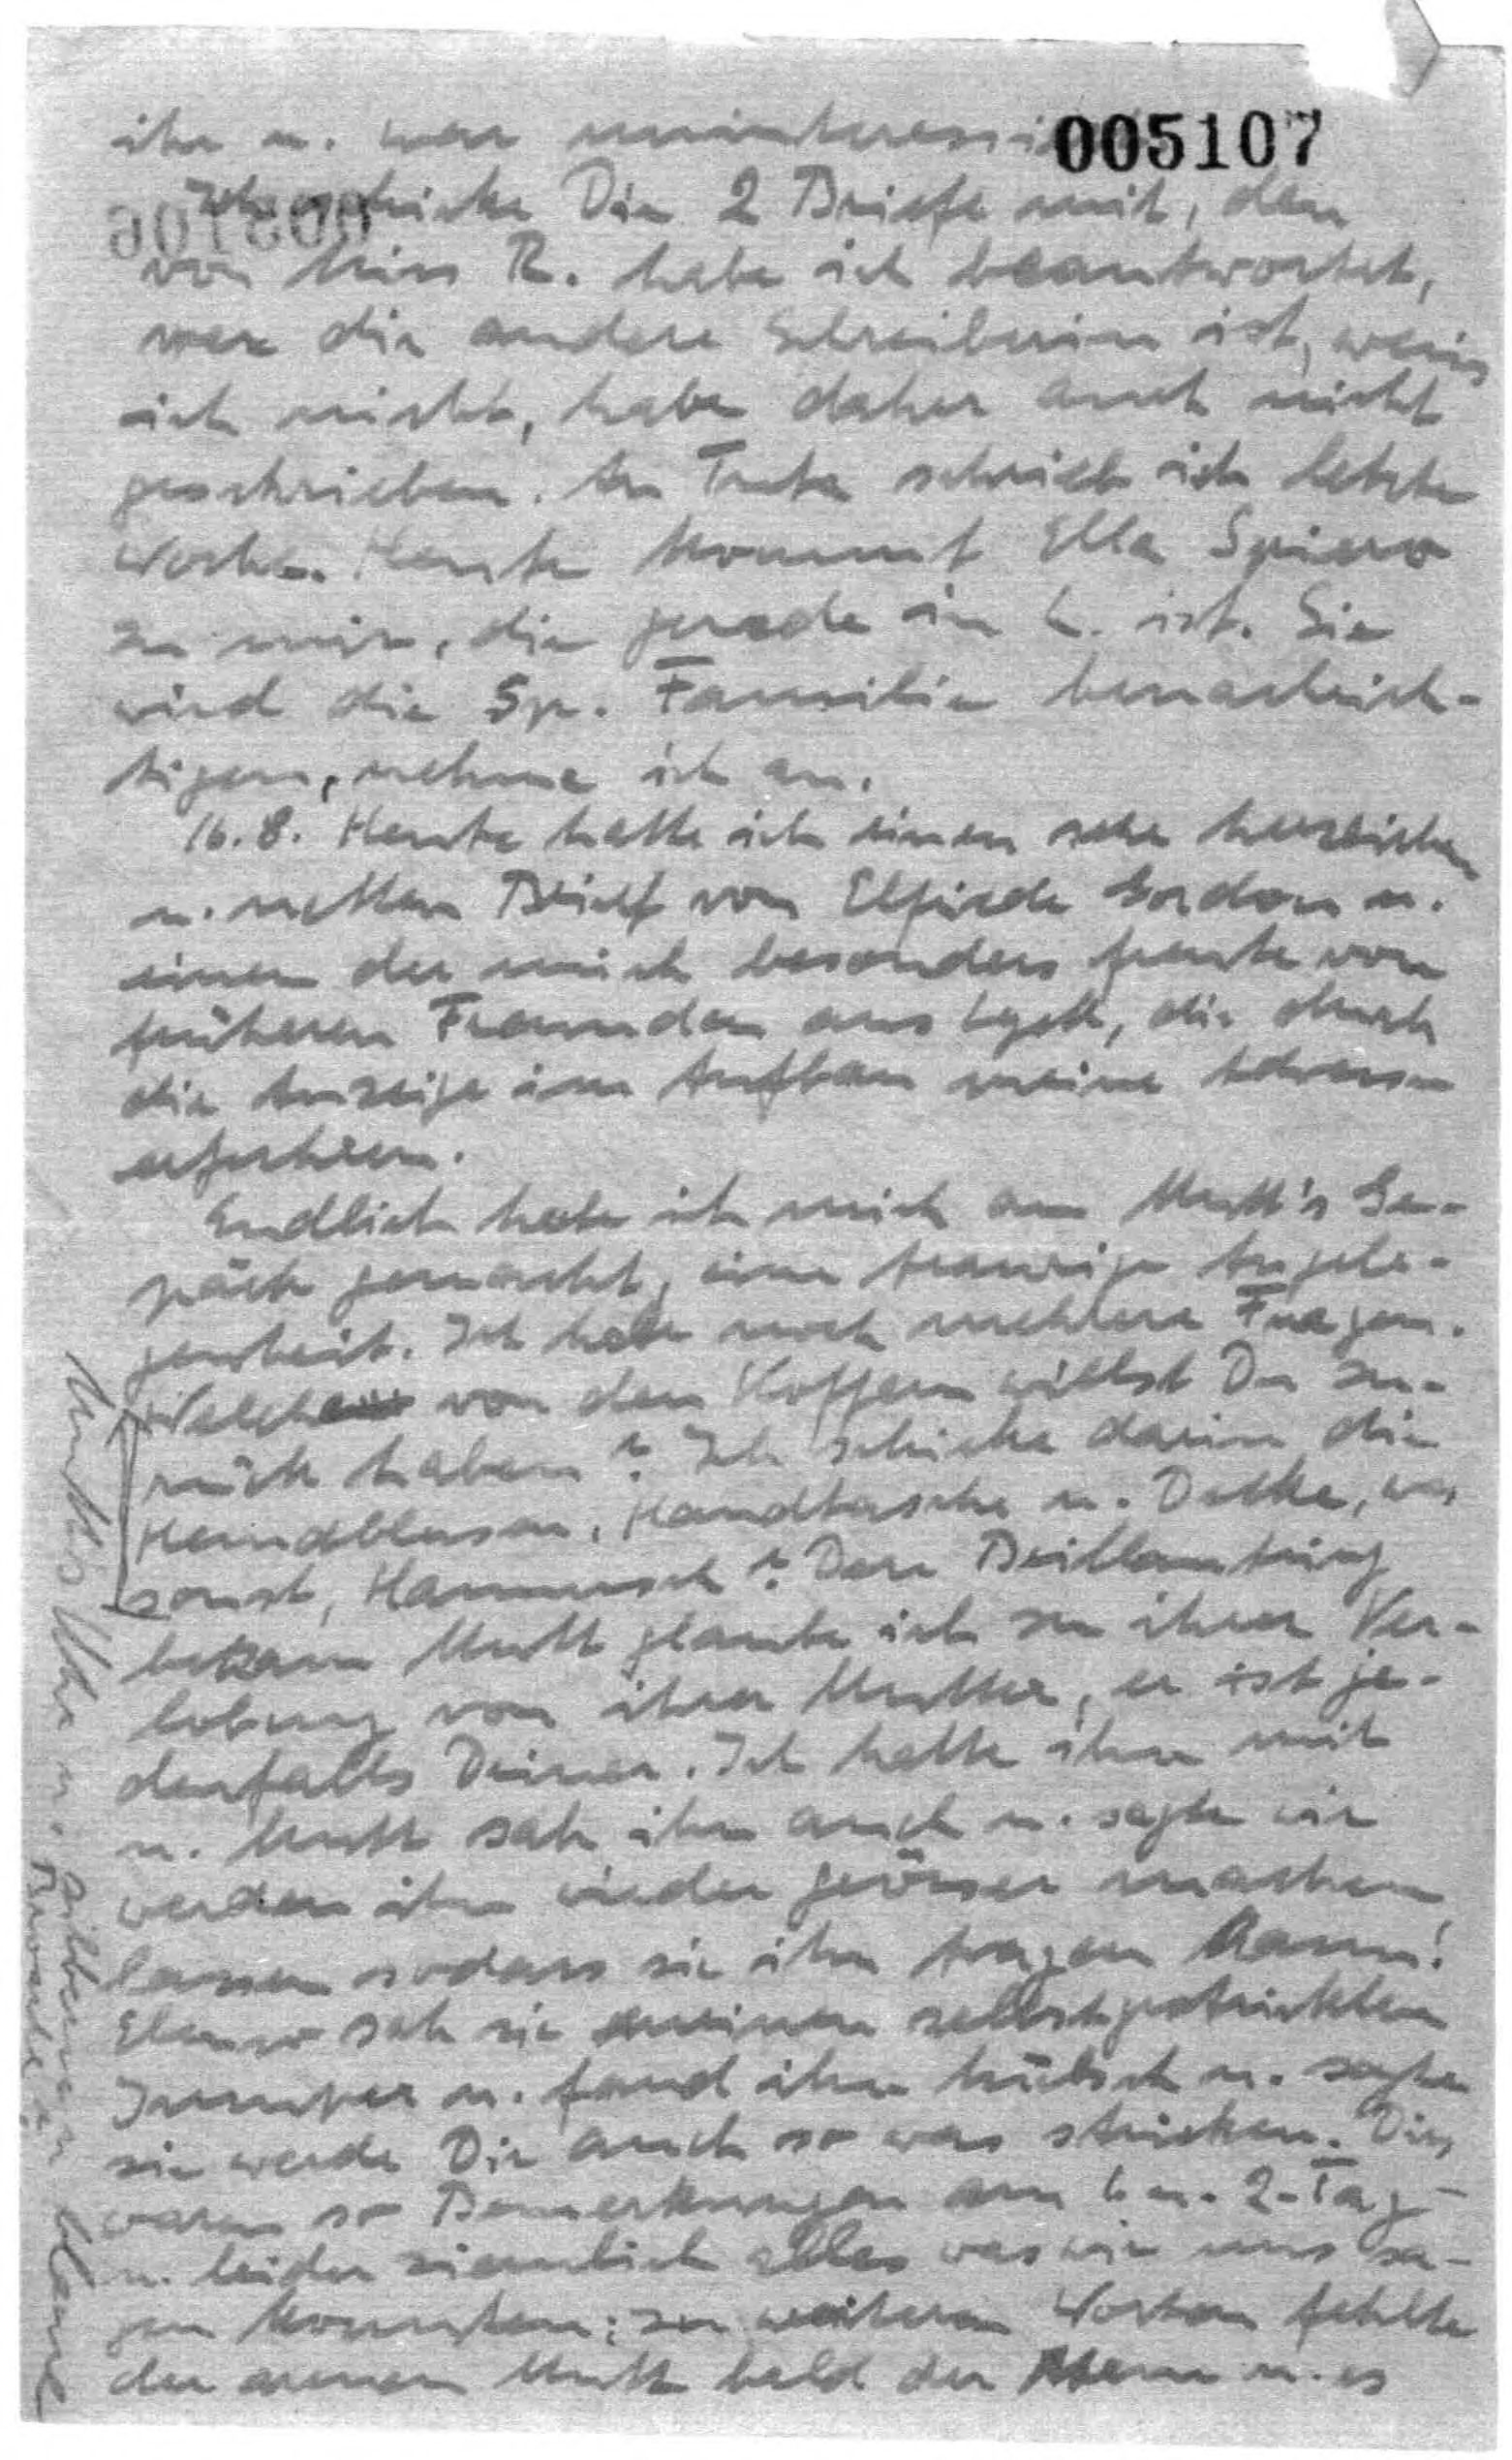 005107
ihr u. war uninteressi
Ich schicke Dir 2 Briefe mit, den
von Miss R. habe ich beantwortet,
wer die andere Schreiberin ist, weiss
ich nicht, habe daher auch nicht
geschrieben. An Trute schrieb ich letzte
Woche. Heute kommt Ella Spiero
zu mir, die gerade in L. ist. Sie
wird die Sp. Familie benachrich-
tigen, nehme ich an.
16.8. Heute hatte ich einen sehr herzlichen
u. netten Brief von Elfriede Gordon u.
einen der mich besonders freute von
früheren Freunden aus Lyck, die durch
die Anzeige im Aufbau meine Adresse
erfuhren.
Endlich habe ich mich an Mutt's Ge-
päck gemacht, eine traurige Angele-
genheit. Ich habe noch mehrere Fragen.
Welchen von den Koffern willst Du zu-
rück haben? Ich schicke darin die
Hemdblusen, Handtasche u. Decke, was
sonst, Hannusch? Den Brillantring
bekam Mutt glaube ich zu ihrer Ver-
lobung von ihrer Mutter, er ist je-
denfalls Deiner. Ich hatte ihn mit
u. Mutt sah ihn auch u. sagte wir
werden ihn wieder grösser machen
lassen sodass sie ihn tragen kann!
Ebenso sah sie meinen selbstgestrickten
Jumper u. fand ihn hübsch u. sagte
sie werde Dir auch so was stricken. Dies
waren so Bemerkungen am 1 u. 2. Tag -
u. leider ziemlich alles was wir uns sa-
gen konnten; zu weiteren Worten fehlte
der armen Mutt bald der Atem u. es
Mutt's Uhr u. silberne u. blaue
Brosche?